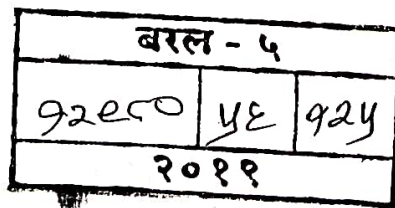 बरल - ५
१२९८० ५६ १२५
२०११